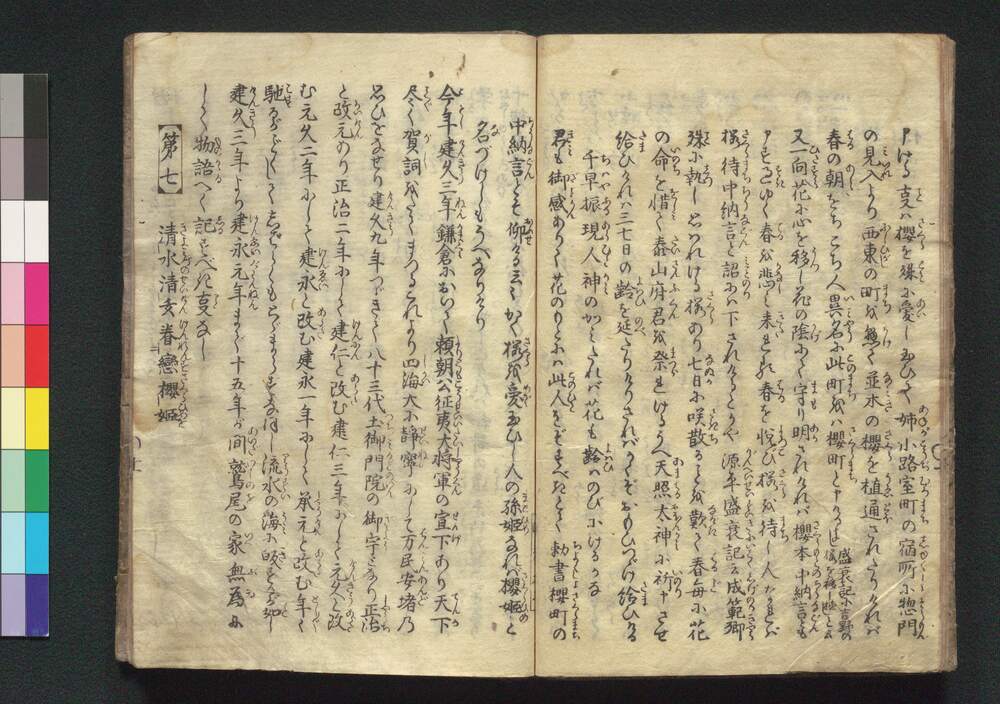 申ける事ハ櫻を殊に愛し玉ひて姉小路室町の宿所に惣門
の見入より西東の町かけて並木の櫻を植通されたりければ
春の朝をちこち人異名に此町をハ櫻町と申ける 盛衰記に吉野の
又一向花に心を移し花の陰にて守り明されければ櫻本中納言とも
申せしゆく春を悲しみ来れる春を悦び櫻を待し人なれば
櫻待中納言と詔に下されけるとかや源平盛衰記ニ成範卿
殊に執し思ハれける櫻あり七日に咲散ることを歎て春毎に花
の命を惜て泰山府君を祭りける上天照太神に祈申させ
給ひければ三七日の齢を延たりけりされバかくぞおもひつゞけ給ひける
千早振現人神のかミたれバ花も齢ハのびにけるかな
君も御感ありて花のもとにハ此人をぞすべきとて勅書櫻町の
中納言とぞ仰ける云々かく櫻を愛玉ひし人の孫姫なれバ櫻姫と
名づけしもうべなりけり
今年建久三年鎌倉において頼朝公征夷大将軍の宣下あり天下
尽く賀詞をたてまつるこれより四海大に静寧にして万民安堵乃
思ひをなせり建久九年つゞきて八十三代土御門院の御宇となり正治
と改元あり正治二年にして建仁と改む建仁三年にして元久と改
む元久二年にして建永と改む建永一年にして承元と改む年々
馳るがごとくにして流水の海に皈するが如し
建久三年より建永元年まで十五年が間鷲尾の家無為に
して物語へて記すべき事なし
【第七】 清水清玄眷戀櫻姫